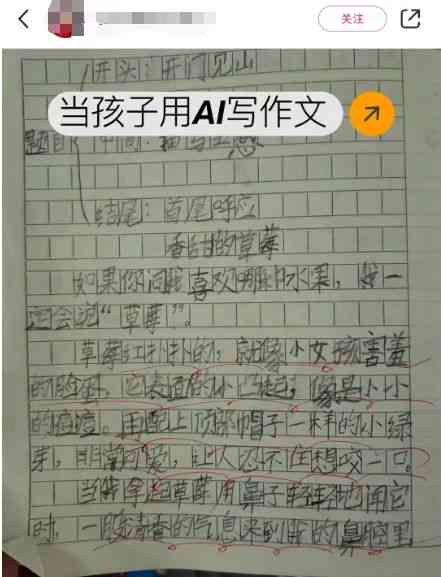 关注
开头:开门见山
当孩子用AI写作文
题目 中间:描写
结尾:首尾呼应
香甜的草莓
如果你问我喜欢哪种水果,我一
定会说“草莓”。
草莓红扑扑的,就像小女孩害羞
的脸蛋,它表面的小凸起,像是小小
的痘痘。再配上顶部帽子一样的小绿
芽,非常可爱,让人忍不住想咬一口。
当我拿起草莓用鼻子轻轻地闻它
时,一股清香的气息来到我的鼻腔里